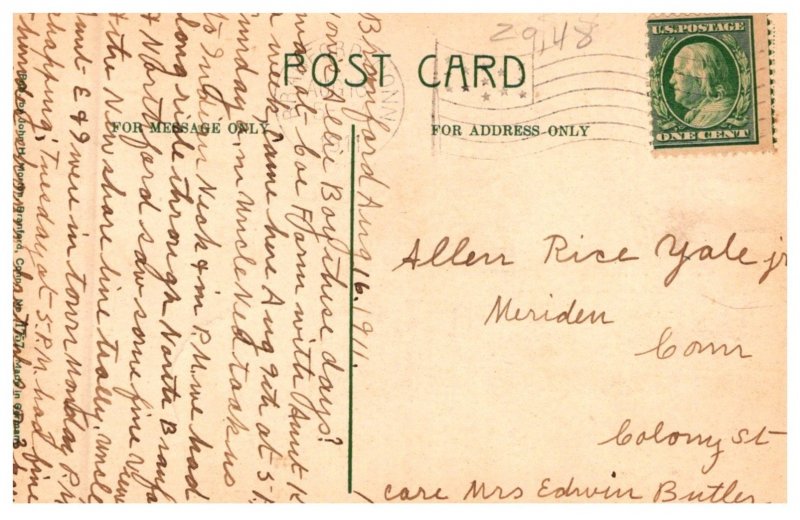 29,48
POST CARD
FOR MESSAGE ONLY
FOR ADDRESS ONLY
U.S. POSTAGE
ONE CENT
Allen Rice Yale jr
Meriden
Conn
Colony St
care Mrs Edwin Butler
Branford Aug 16. 1911.
Allie Boy these days?
was at Coe Farm with Aunt K
a week. Came here Aug 9th at 5 P.
Sunday A.M. Uncle Ned took us
to Indian Neck & in P.M. we had
long ride through North Branfo
& Northford saw some fine view
& the New shore line trolly. Uncle
Aunt E & I were in town Monday P.M
shopping, Tuesday at 5 P.M. had fine
Made in Germany